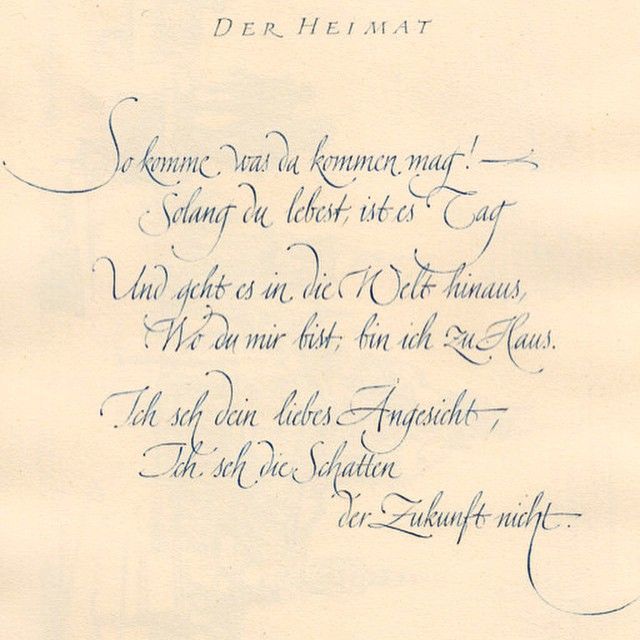 DER HEIMAT
So komme was da kommen mag! —
Solang du lebest, ist es Tag
Und geht es in die Welt hinaus,
Wo du mir bist, bin ich zu Haus.
Ich seh dein liebes Angesicht,
Ich seh die Schatten
der Zukunft nicht.